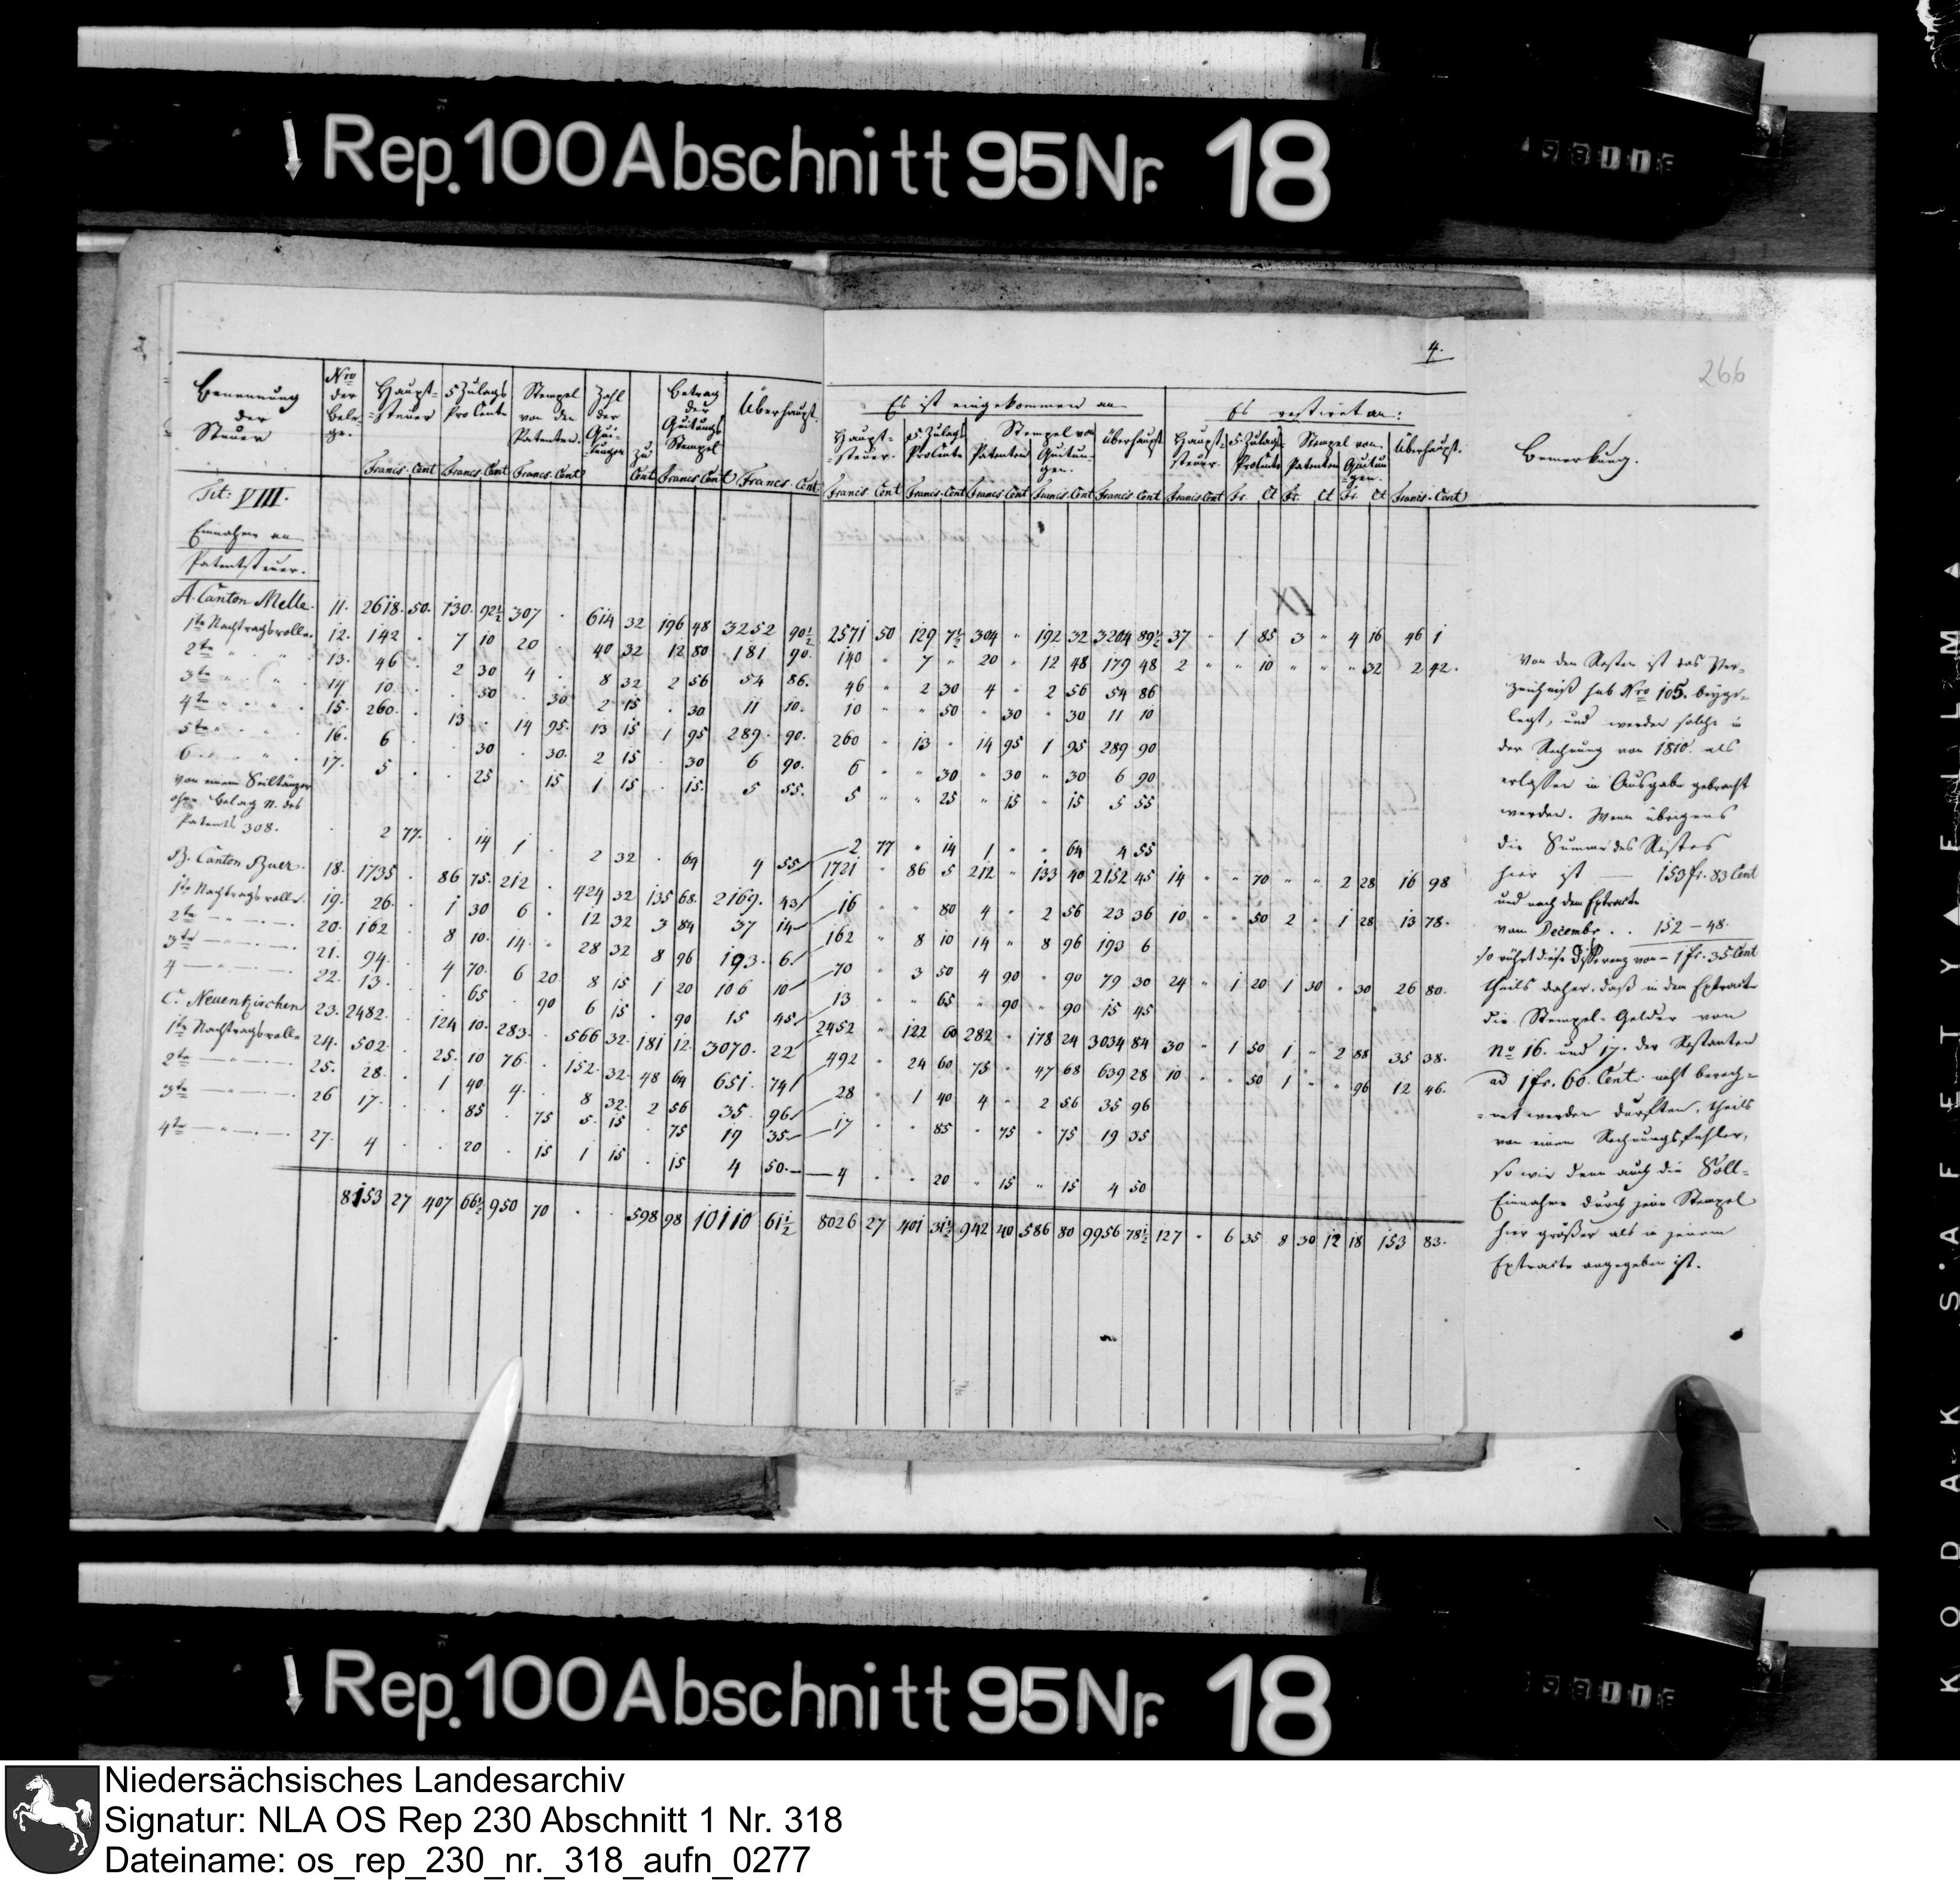 Rep. 100 Abschnitt 95 Nr. 18
4.
266
Benennung der Steuer | Nro der Bele- ge. | Haupt- steuer | 5 Zulags Pro Cente | Stempel von den Patenten. | Zahl der Qui- tungen | zu | Betrag der Quitungs Stempel | Überhaupt.
Es ist eingekommen an | Es restiret an:
Haupt- steuer. | 5. Zulags Procente | Stempel von Patenten | Quitun- gen. | Überhaupt | Haupt- steuer. | 5. Zulags Procente | Stempel von Patenten | Quitun gen. | Überhaupt. | Bemerkung.
Francs. Cent | Francs. Cent | Francs. Cent | Cent | Francs Cent | Francs. Cent | Francs Cent | Francs. Cent | Francs Cent | Francs. Cent | Francs Cent | Francs Cent | Fr. Ct | Fr. Ct | Fr. Ct | Francs. Cent
Tit: VIII.
Einnahme an
Patentsteuer.
A. Canton Melle. 11. 2618. 50. 130. 92½ 307 . 614 32 196 48 3252 90½ 2571 50 129 7½ 304 " 192 32 3204 89½ 37 " 1 85 3 " 4 16 46 1
1te Nachtragsrolle. 12. 142 . 7 10 20 . 40 32 12 80 181 90. 140 " 7 " 20 " 12 48 179 48 2 " " 10 " " " 32 2 42.
2te " " " 13. 46 . 2 30 4 . 8 32 2 56 54 86. 46 " 2 30 4 " 2 56 54 86
3te " " " 14 10. . . 50 . 30 2 15 . 30 11 10. 10 " " 50 " 30 " 30 11 10
4te " " " 15. 260. . 13 . 14 95. 13 15 1 95 289. 90. 260 " 13 " 14 95 1 95 289 90
5te " " " 16. 6 . . 30 . 30. 2 15 . 30 6 90. 6 " " 30 " 30 " 30 6 90
6. " " 17. 5 . . 25 . 15 1 15 . 15. 5 55. 5 " " 25 " 15 " 15 5 55
von einem Seiltänzer
ohne Belag n. des
Patents 308. . 2 77. . 14 1 . 2 32 . 64 4 55 2 77 " 14 1 " " 64 4 55
B. Canton Buer. 18. 1735 . 86 75. 212 . 424 32 135 68. 2169. 43 1721 " 86 5 212 " 133 40 2152 45 14 " " 70 " " 2 28 16 98
1te Nachtragsrolle. 19. 26. . 1 30 6 . 12 32 3 84 37 14 16 " " 80 4 " 2 56 23 36 10 " " 50 2 " 1 28 13 78.
2te — " — 20. 162 . 8 10. 14. . 28 32 8 96 193. 6 162 " 8 10 14 " 8 96 193 6
3te — " — 21. 94. . 4 70. 6 20 8 15 1 20 106 10 70 " 3 50 4 90 " 90 79 30 24 " 1 20 1 30 " 30 26 80.
4 — " — 22. 13. . . 65 . 90 6 15 . 90 15 45 13 " " 65 " 90 " 90 15 45
C. Neuenkirchen 23. 2482. . 124 10. 283. . 566 32. 181 12. 3070. 22 2452 " 122 60 282 " 178 24 3034 84 30 " 1 50 1 " 2 88 35 38.
1te Nachtragsrolle 24. 502. . 25. 10 76. . 152. 32. 48 64 651. 74 492 " 24 60 75 " 47 68 639 28 10 " " 50 1 " " 96 12 46.
2te — " — 25. 28. . 1 40 4. . 8 32. 2 56 35. 96 28 " 1 40 4 " 2 56 35 96
3te — " — 26 17. . . 85 . 75 5. 15 . 75 19 35 17 " " 85 " 75 " 75 19 35
4te — " — 27. 4 . . 20 . 15 1 15 . 15 4 50. 4 " " 20 " 15 " 15 4 50
8153 27 407 66½ 950 70 . . 598 98 10110 61½ 8026 27 401 31½ 942 40 586 80 9956 78½ 127 " 6 35 8 30 12 18 153 83.
IX
Von den Resten ist das Ver-
zeichniß sub Nro 105. beyge-
legt, und werden solche in
der Rechnung von 1810. als
erlassen in Ausgabe gebracht
werden. Wenn übrigens
die Summe des Restes
hier ist — 153 fr. 83 Cent
und nach dem Extracte
vom Decembr. . . 152 – 48.
so rührt diese Differenz von – 1 fr. 35 Cent
theils daher, daß in dem Extracte
die Stempel-Gelder von
No 16. und 17. der Restanten
ad 1 fr. 60. Cent. nicht berech-
net werden durften, theils
von einem Rechnungsfehler,
so wie denn auch die Soll-
Einnahme durch jene Stempel
hier größer als in jenem
Extracte angegeben ist.
Rep. 100 Abschnitt 95 Nr. 18
KODAK SAFETY FILM
Niedersächsisches Landesarchiv
Signatur: NLA OS Rep 230 Abschnitt 1 Nr. 318
Dateiname: os_rep_230_nr._318_aufn_0277